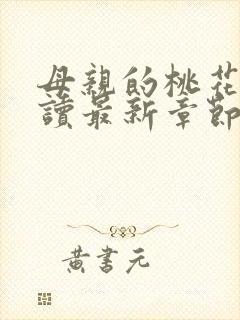 母親的桃花
讀最新章節
黃書元